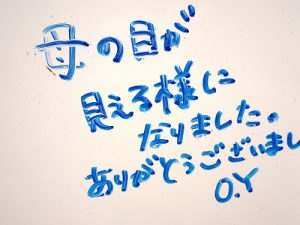 母の目が
見える様に
なりました。
ありがとうございまし
O.Y